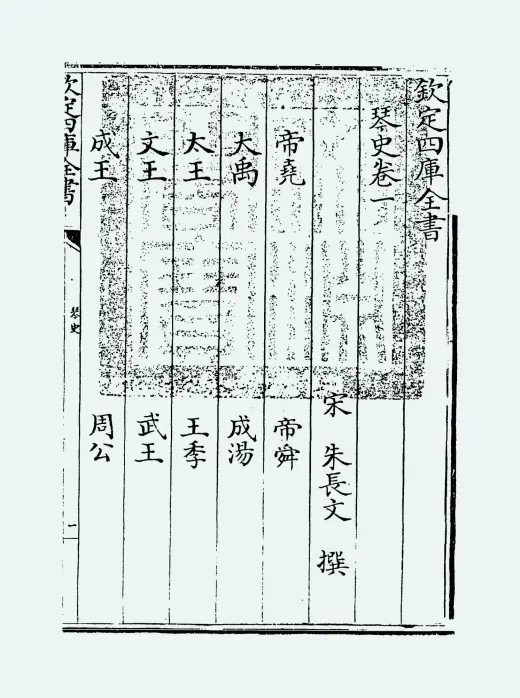 欽定四庫全書
琴史卷一
宋 朱長文 撰
帝堯 帝舜
大禹 成湯
太王 王季
文王 武王
成王 周公
欽定四庫全書
琴史
一